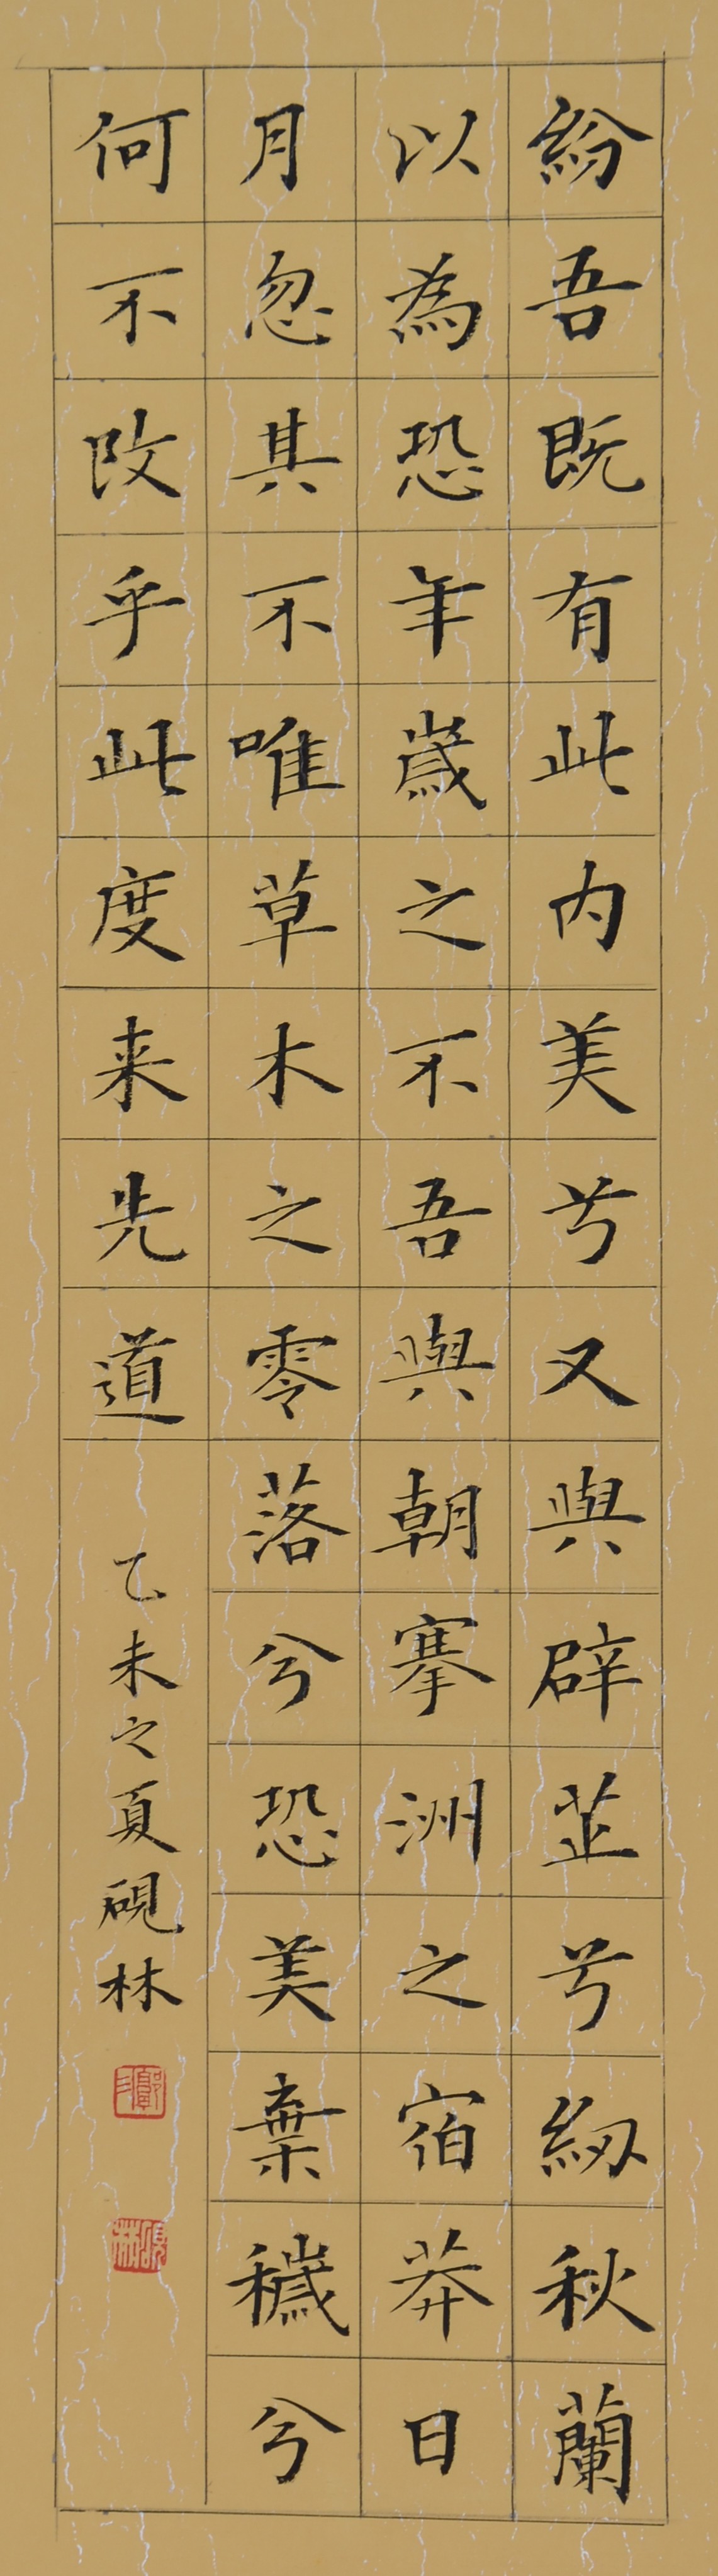 紛吾既有此内美兮又與辟芷兮紉秋蘭
以為恐年歲之不吾與朝搴洲之宿莽日
月忽其不唯草木之零落兮恐美棄穢兮
何不改乎此度来先道
乙未之夏硯林